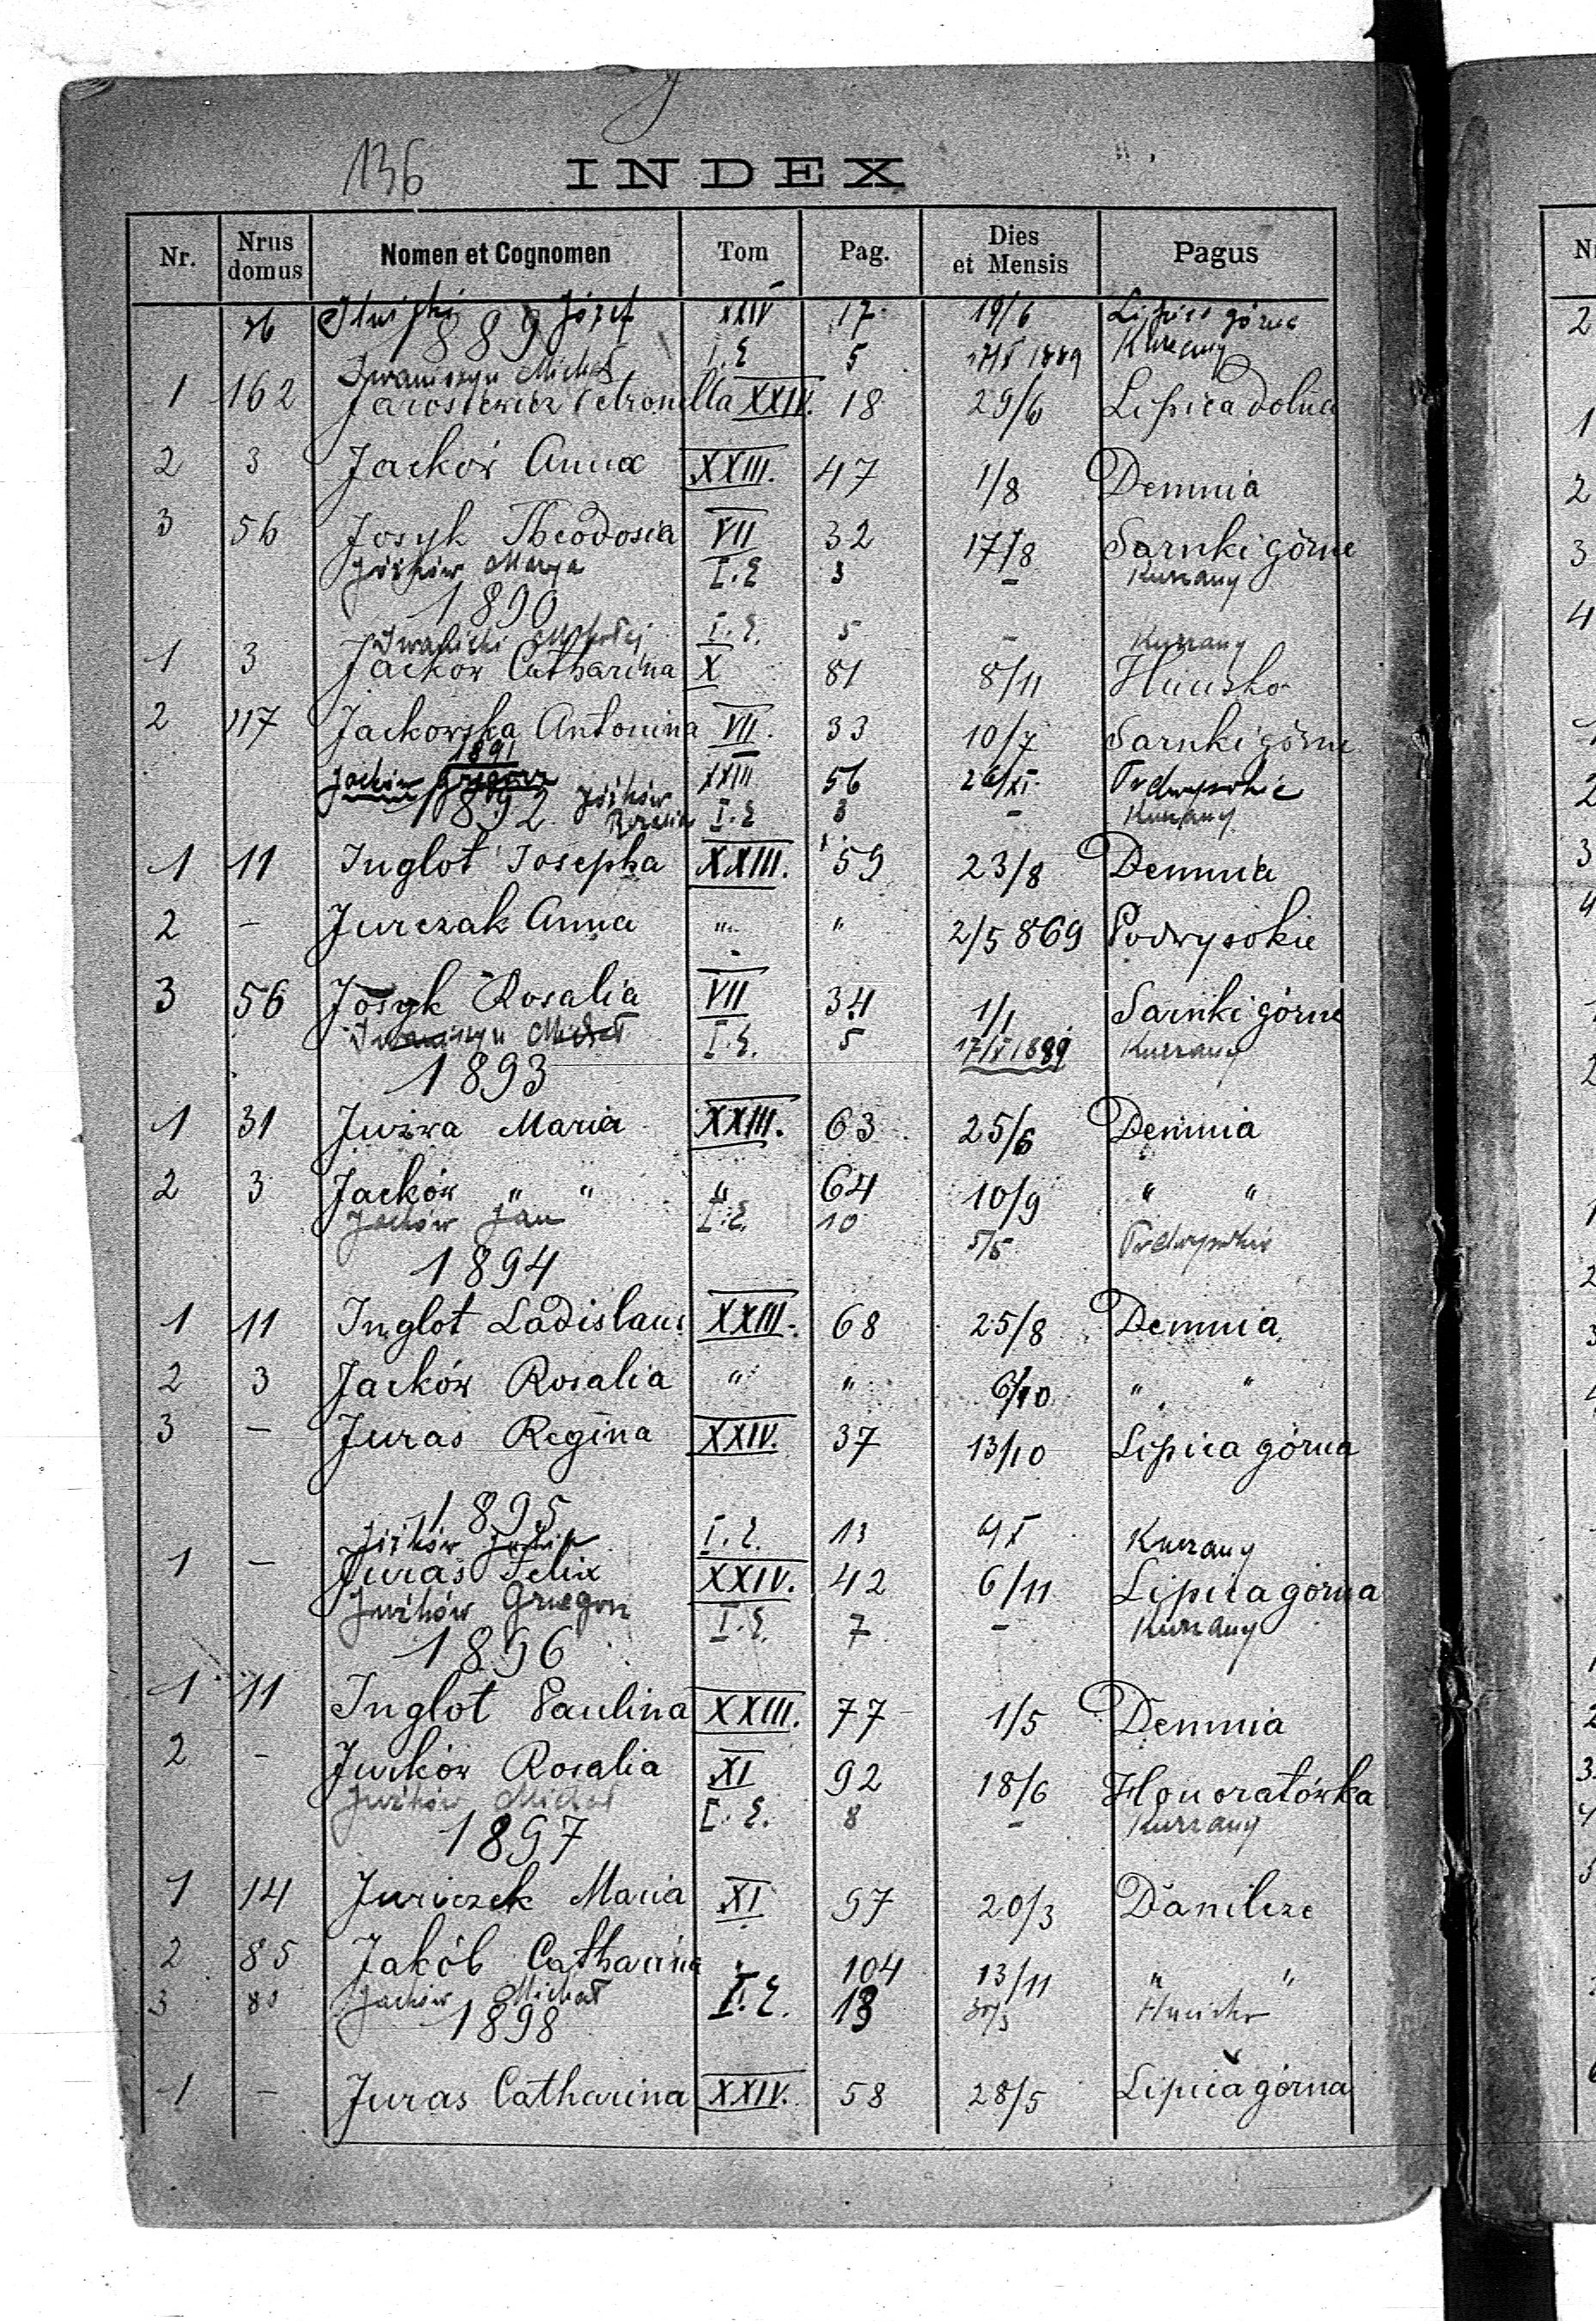 136
INDEX
Nr. Nrus domus Nomen et Cognomen Tom Pag. Dies et Mensis Pagus
76 Józef XXIV 17 19/6 Lipica górna
1889
Iwaniszyn Michał I.E 5 17/V 1889 Kurzany
1 162 Jarosiewicz Petronella XXIV. 18 29/6 Lipica dolna
2 3 Jacków Anna XXIII. 47 1/8 Demnia
3 56 Josyk Theodosia VII 32 17/8 Sarnki górne
Jóźków Marya I.E 3 – Kurzany
1890
Iwanicki Mikołaj I.E. 5 – Kurzany
1 3 Jacków Catharina X 81 8/11 Hucisko
2 117 Jackowska Antonina VII. 33 10/7 Sarnki górne
1891
Jacków Grzegorz XXIII 56 26/XI Podwysokie
1892 Jóźków Rozalia I.E 3 – Kurzany
1 11 Inglot Josepha XXIII. 59 23/8 Demnia
2 – Jurczak Anna " " 2/5 869 Podwysokie
3 56 Josyk Rosalia VII 34 1/1 Sarnki górne
Iwaniszyn Michał I.E. 5 17/V 1889 Kurzany
1893
1 31 Juźwa Maria XXIII. 63 25/6 Demnia
2 3 Jacków " " " 64 10/9 " "
Jacków Jan I.E. 10 5/5 Podwysokie
1894
1 11 Inglot Ladislaus XXIII. 68 25/8 Demnia
2 3 Jacków Rosalia " " 6/10 " "
3 – Juras Regina XXIV. 37 13/10 Lipica górna
1895
Jóźków I.E. 13 Kurzany
1 – Juras Felix XXIV. 42 6/11 Lipica górna
Juźków Grzegorz I.E. 7 – Kurzany
1896
1 11 Inglot Paulina XXIII. 77 1/5 Demnia
2 – Jurków Rosalia XI 92 18/6 Honoratówka
Juźków Michał I.E. 8 – Kurzany
1897
1 14 Juriczek Maria XI 97 20/3 Danilcze
2 85 Jakób Catharina " 104 13/11 " "
3 Jacków Michał I.E. 13 Hucisko
1898
1 – Juras Catharina XXIV. 58 28/5 Lipica górna